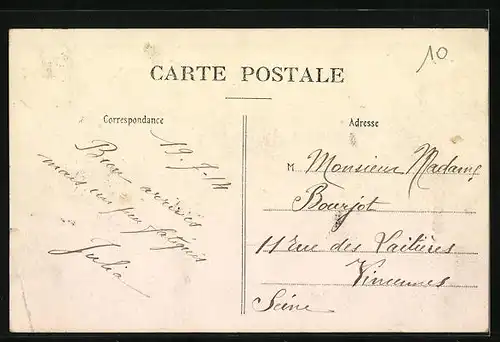 10
CARTE POSTALE
Correspondance
19-7-14
Bien arrivés
mais un peu fatigués
Julia
Adresse
M Monsieur Madame
Bourjot
11 rue des Laitières
Vincennes
Seine